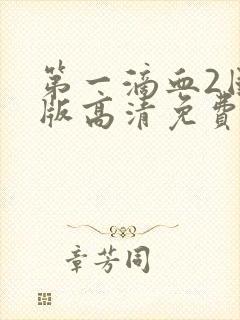 第一滴血2
版高清免费
章芳同